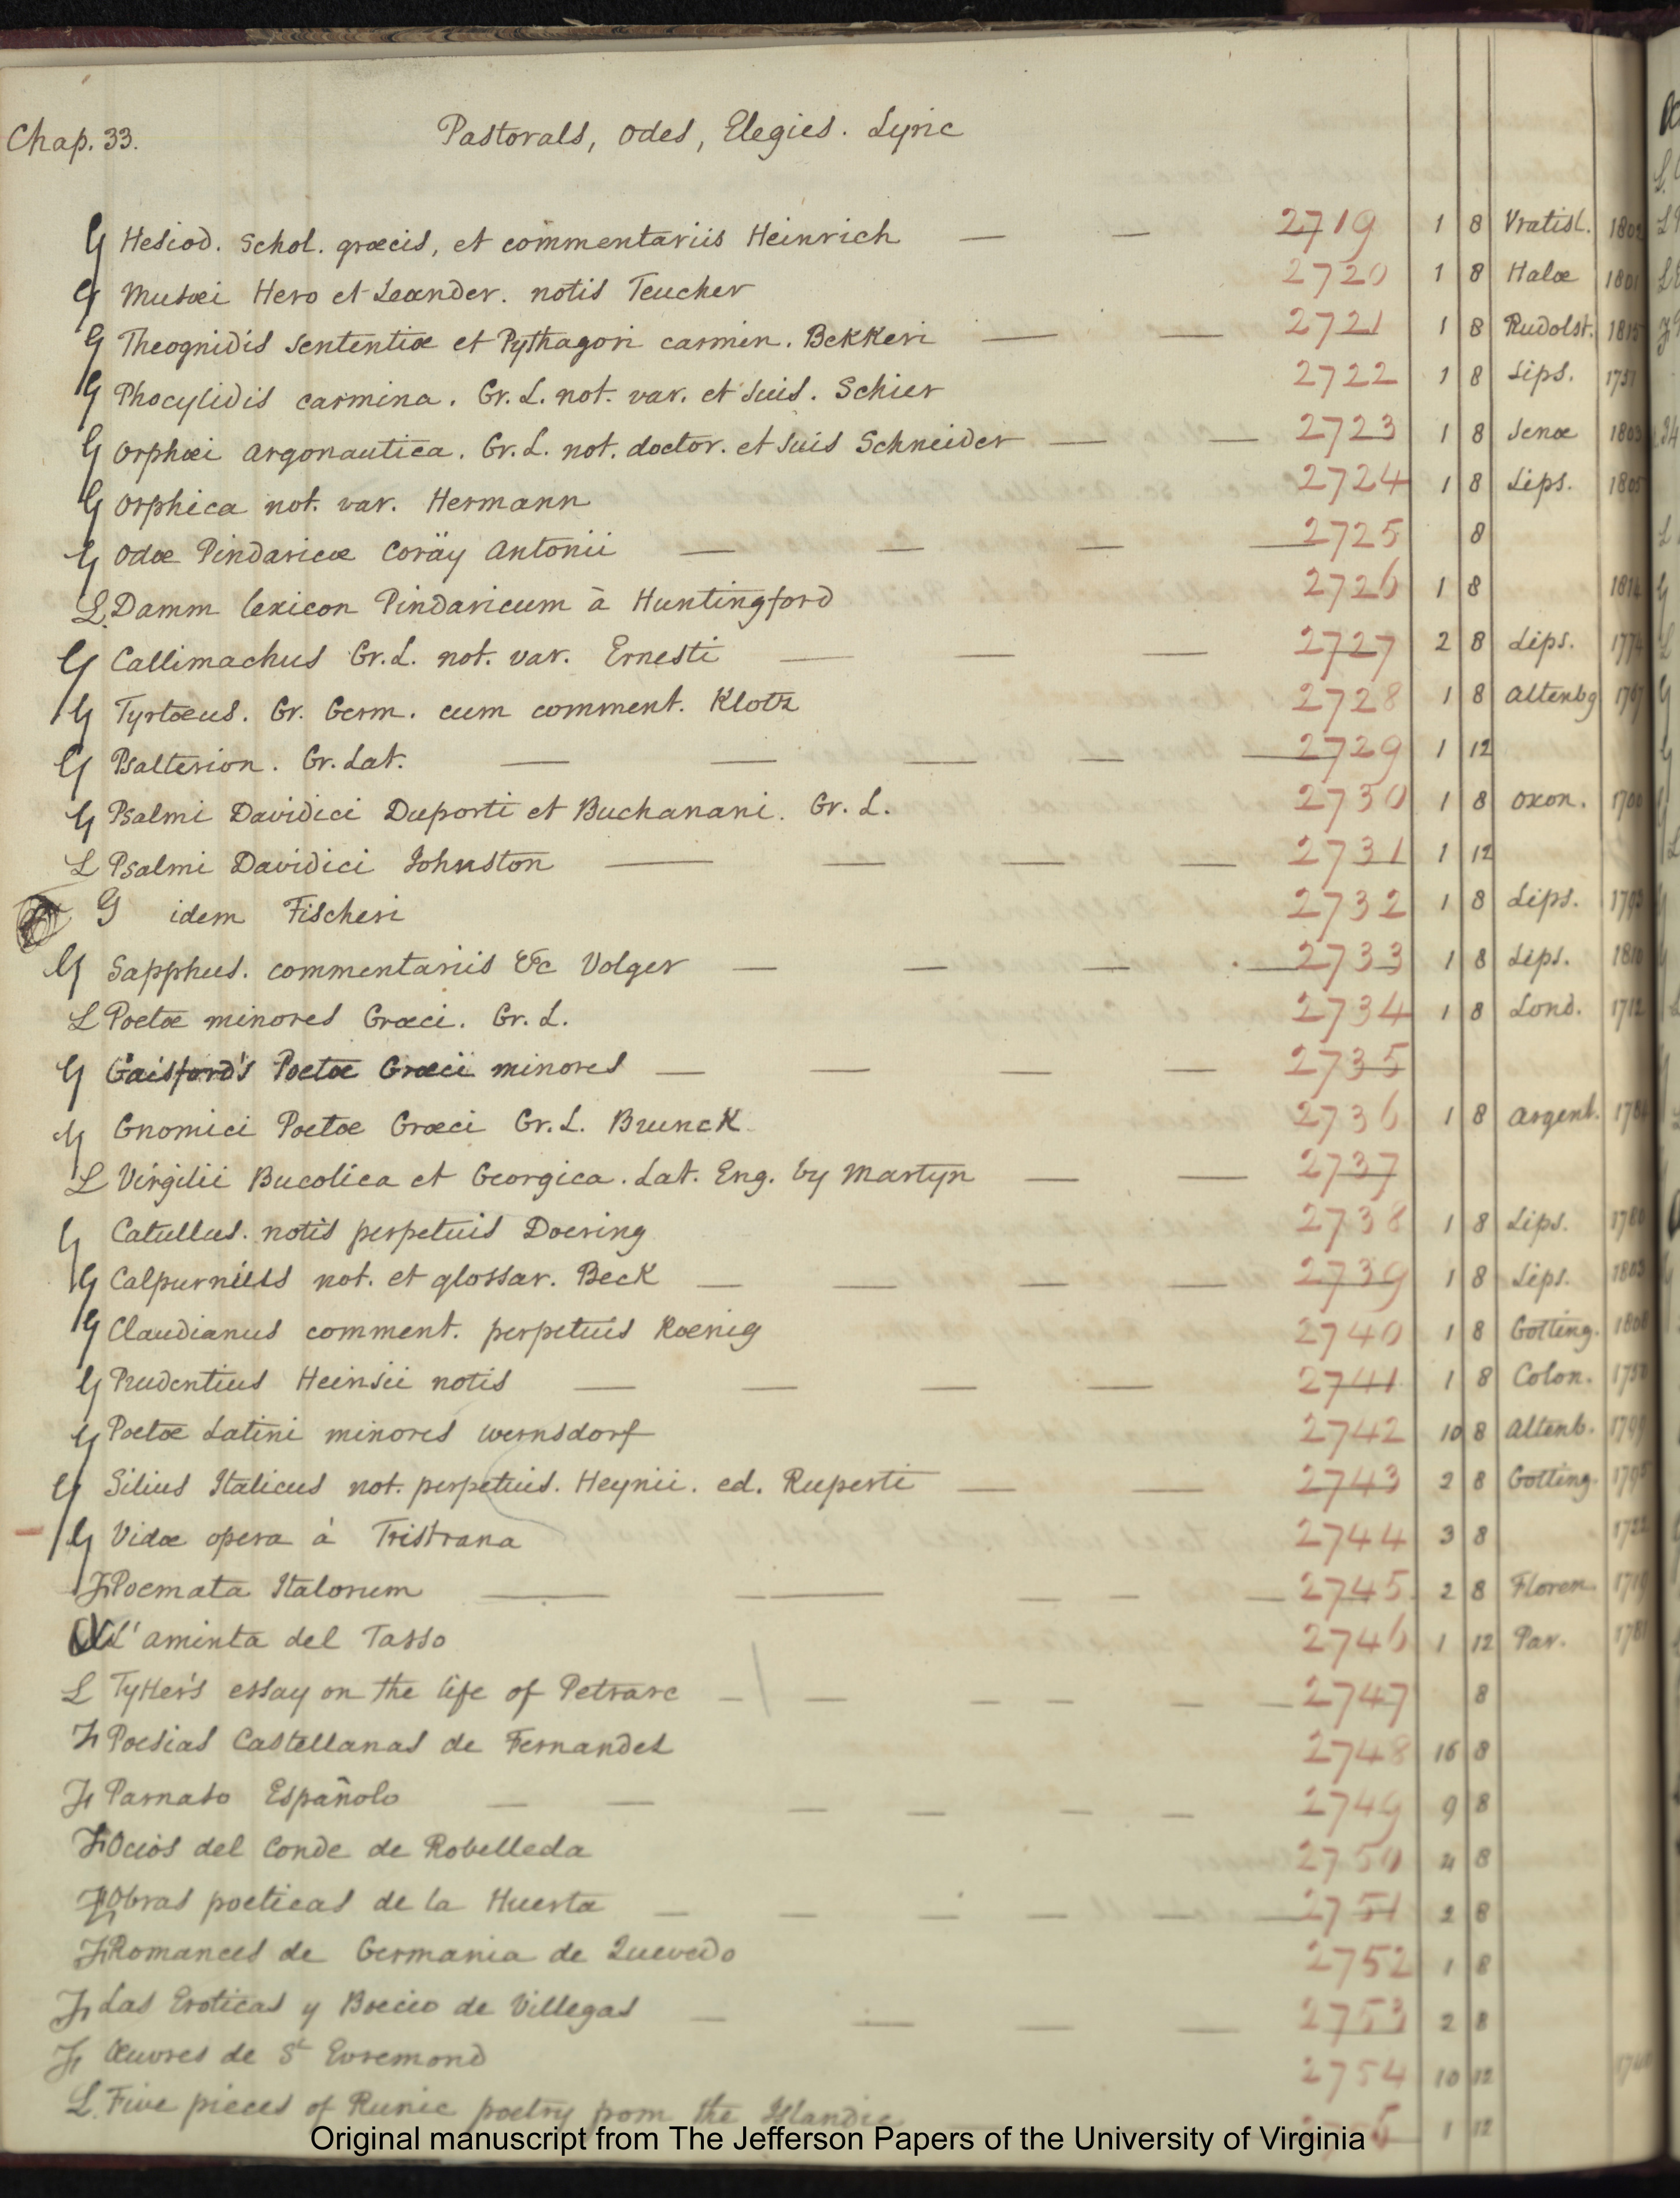 Chap. 33. Pastorals, Odes, Elegies. Lyric
G Hesiod. Schol. græcis, et commentariis Heinrich 2719 1 8 Vratisl. 1802
G Musæi Hero et Leander. notis Teucher 2720 1 8 Halæ 1801
G Theognidis Sententiæ et Pythagori carmin. Bekkeri 2721 1 8 Rudolst. 1815
G Phocylidis carmina. Gr. L. not. var. et suis. Schier 2722 1 8 Lips. 1751
G Orphæi Argonautica. Gr. L. not. doctor. et suis Schneider 2723 1 8 Jenæ 1803
G Orphica not. var. Hermann 2724 1 8 Lips. 1805
G Odæ Pindaricæ Coräy Antonii 2725 8
L Damm lexicon Pindaricum à Huntingford 2726 1 8 1814
G Callimachus Gr. L. not. var. Ernesti 2727 2 8 Lips. 1774
G Tyrtæus. Gr. Germ. cum comment. Klotz 2728 1 8 Altenbg 1767
G Psalterion. Gr. Lat. 2729 1 12
G Psalmi Davidici Duporti et Buchanani. Gr. L. 2730 1 8 Oxon. 1700
L Psalmi Davidici Johnston 2731 1 12
G idem Fischeri 2732 1 8 Lips. 1793
G Sapphus. commentariis &c Volger 2733 1 8 Lips. 1810
L Poetæ minores Græci. Gr. L. 2734 1 8 Lond. 1712
G Gaisford's Poetæ Græci minores 2735
G Gnomici Poetæ Græci Gr. L. Brunck 2736 1 8 Argent. 1784
L Virgilii Bucolica et Georgica. Lat. Eng. by Martyn 2737
G Catullus. notis perpetuis Doering 2738 1 8 Lips. 1788
G Calpurnius not. et glossar. Beck 2739 1 8 Lips. 1803
G Claudianus comment. perpetuis Koenig 2740 1 8 Gotting. 1808
G Prudentius Heinsii notis 2741 1 8 Colon.
G Poetæ Latini minores Wernsdorf 2742 10 8 Altenb. 1799
G Silius Italicus not. perpetuis. Heynii. ed. Ruperti 2743 2 8 Gotting. 1795
G Vidæ opera à Tristrana 2744 3 8 1722
F Poemata Italorum 2745 2 8 Floren. 1719
L'Aminta del Tasso 2746 1 12 Par. 1781
L Tytler's essay on the life of Petrarc 2747 8
F Poesias Castellanas de Fernandes 2748 16 8
F Parnaso Españolo 2749 9 8
F Ocios del Conde de Robelleda 2750 4 8
F Obras poeticas de la Huerta 2751 2 8
F Romances de Germania de Quevedo 2752 1 8
F Las Eroticas y Boecio de Villegas 2753 2 8
F Œuvres de St Evremond 2754 10 12 1740
L. Five pieces of Runic poetry from the Islandic 1 12
Original manuscript from The Jefferson Papers of the University of Virginia